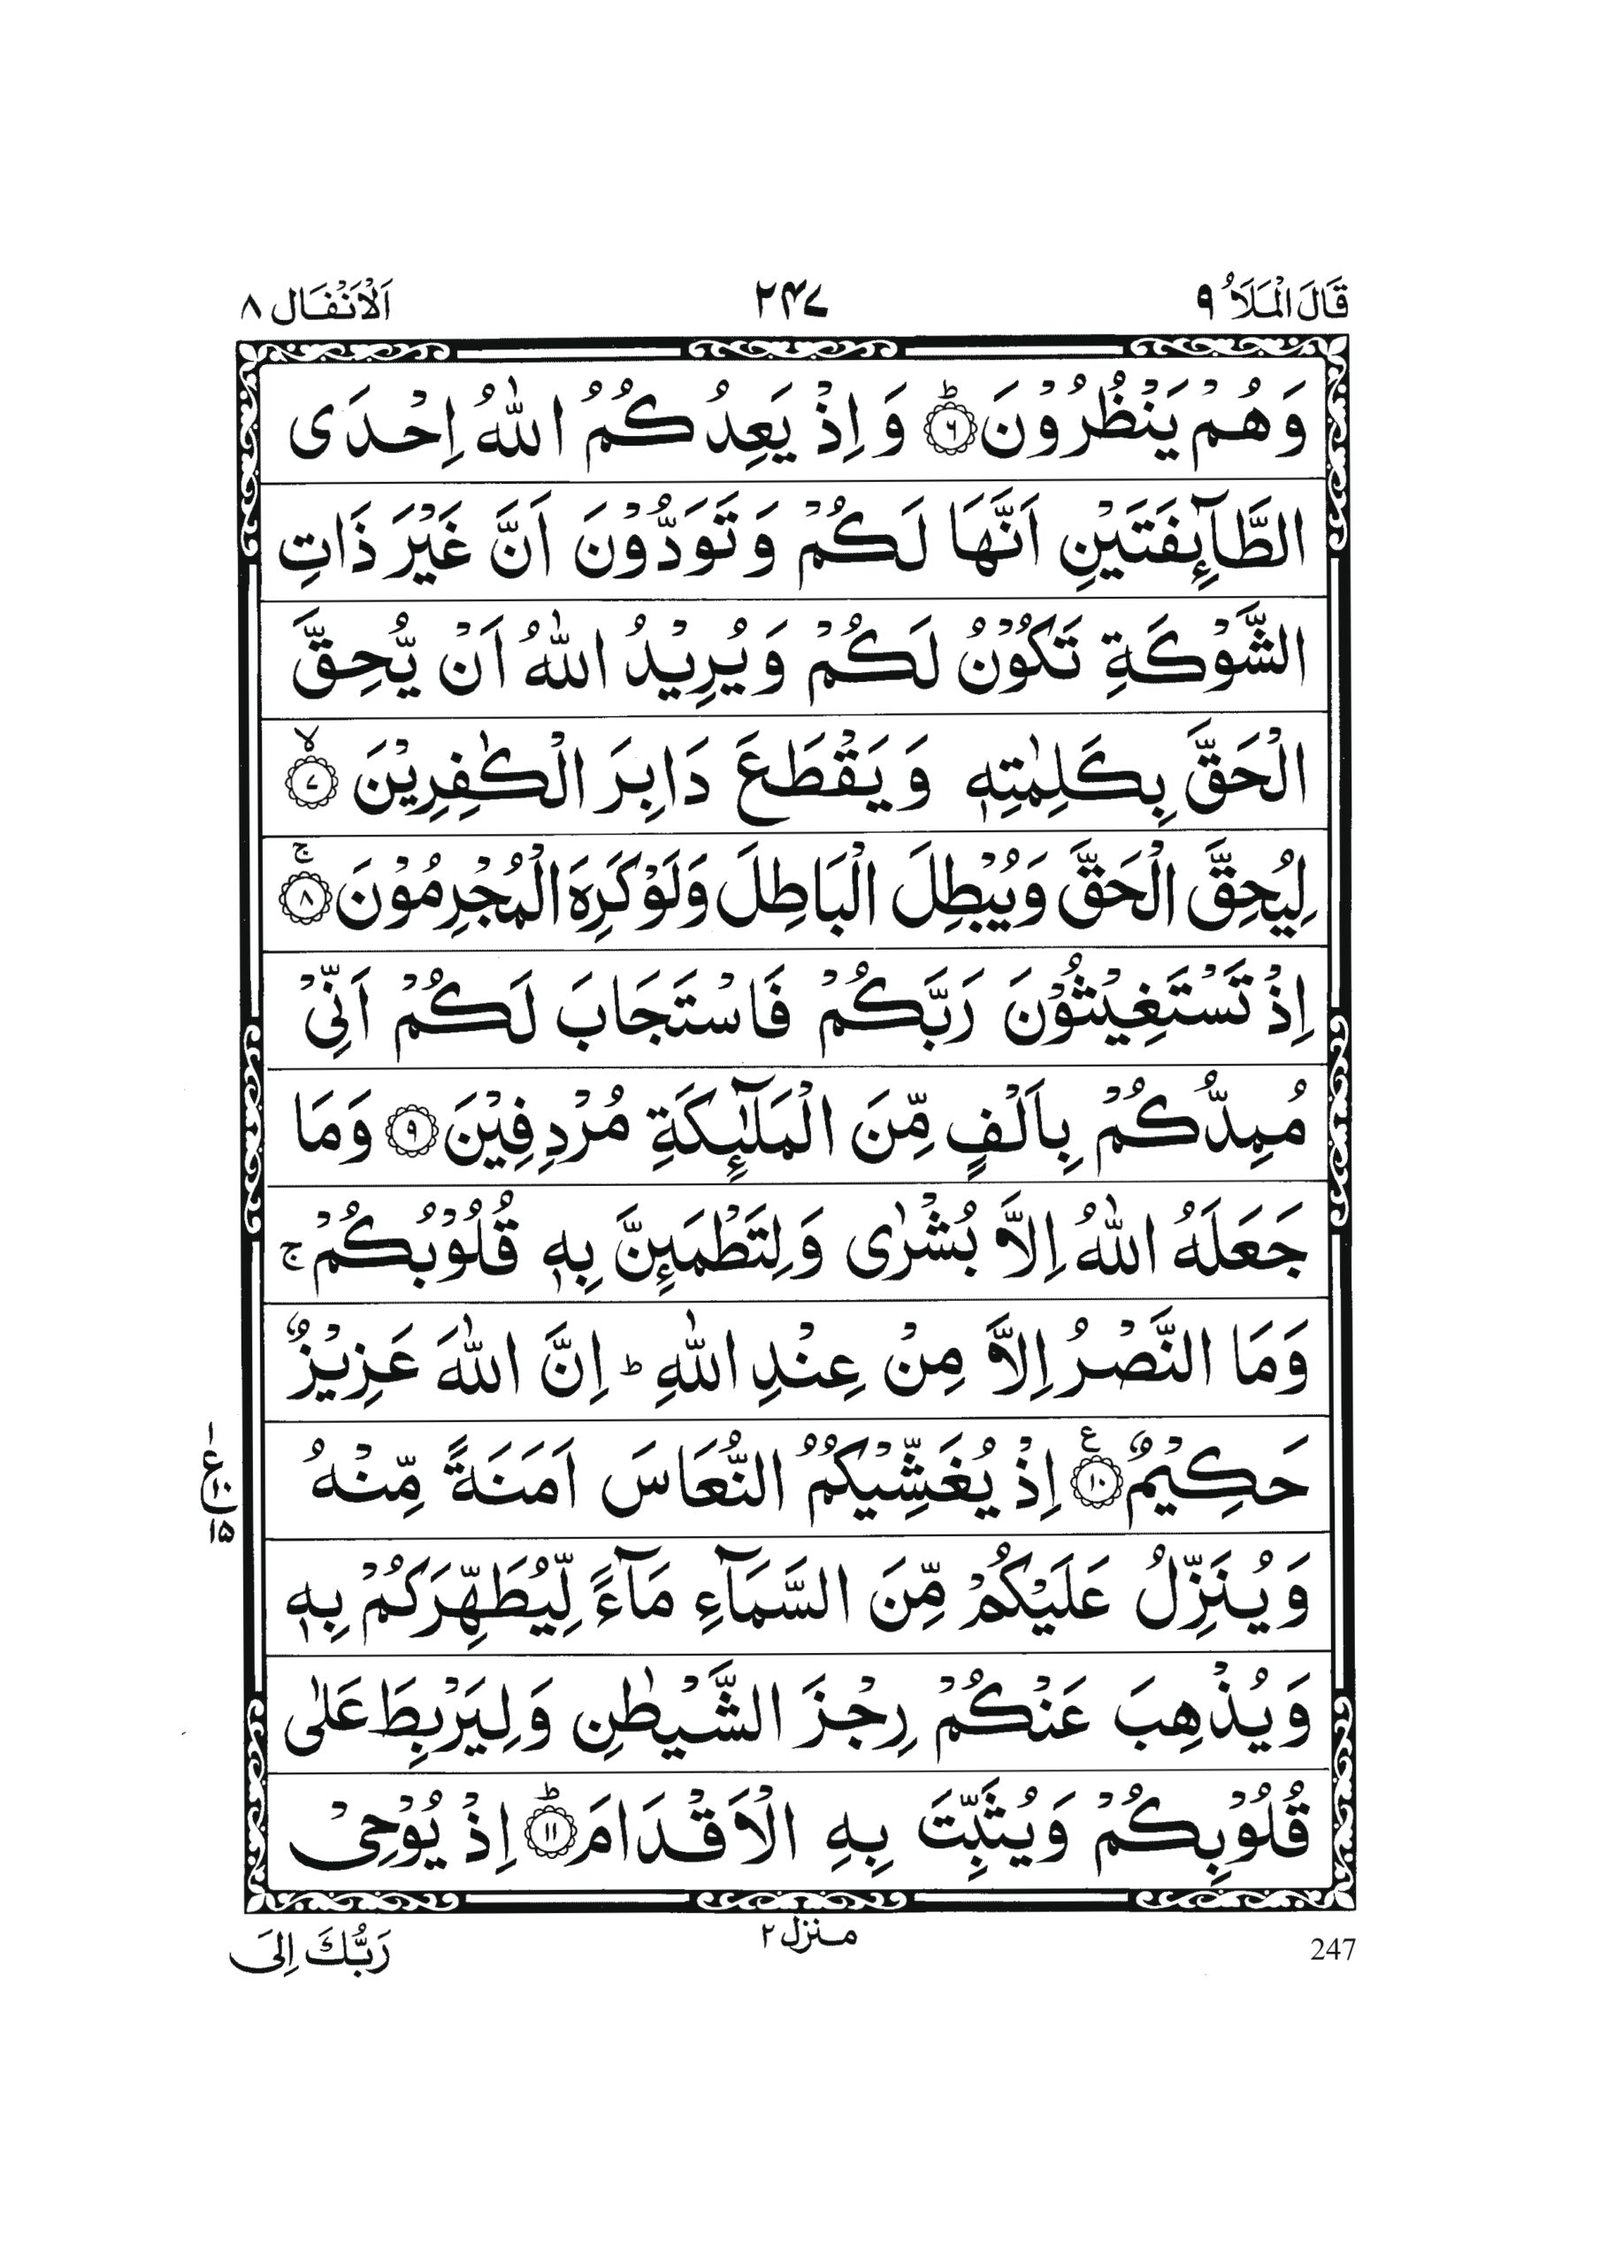 قَالَ الْمَلَاُ ٩
٢٤٧
اَلْاَنْفَال ٨
وَهُمْ يَنْظُرُوْنَ ؕ﴿٦﴾ وَ اِذْ يَعِدُكُمُ اللّٰهُ اِحْدَى
الطَّآئِفَتَيْنِ اَنَّهَا لَكُمْ وَتَوَدُّوْنَ اَنَّ غَيْرَ ذَاتِ
الشَّوْكَةِ تَكُوْنُ لَكُمْ وَيُرِيْدُ اللّٰهُ اَنْ يُّحِقَّ
الْحَقَّ بِكَلِمٰتِهٖ وَيَقْطَعَ دَابِرَ الْكٰفِرِيْنَ ۙ﴿٧﴾
لِيُحِقَّ الْحَقَّ وَيُبْطِلَ الْبَاطِلَ وَلَوْكَرِهَ الْمُجْرِمُوْنَ ۚ﴿٨﴾
اِذْ تَسْتَغِيْثُوْنَ رَبَّكُمْ فَاسْتَجَابَ لَكُمْ اَنِّيْ
مُمِدُّكُمْ بِاَلْفٍ مِّنَ الْمَلٰٓئِكَةِ مُرْدِفِيْنَ ﴿٩﴾ وَمَا
جَعَلَهُ اللّٰهُ اِلَّا بُشْرٰى وَلِتَطْمَئِنَّ بِهٖ قُلُوْبُكُمْ ۚ
وَمَا النَّصْرُ اِلَّا مِنْ عِنْدِ اللّٰهِ ؕ اِنَّ اللّٰهَ عَزِيْزٌ
حَكِيْمٌ ﴿١٠﴾ ع اِذْ يُغَشِّيْكُمُ النُّعَاسَ اَمَنَةً مِّنْهُ
١ ع ١٠ ١٥
وَيُنَزِّلُ عَلَيْكُمْ مِّنَ السَّمَآءِ مَآءً لِّيُطَهِّرَكُمْ بِهٖ
وَيُذْهِبَ عَنْكُمْ رِجْزَ الشَّيْطٰنِ وَلِيَرْبِطَ عَلٰى
قُلُوْبِكُمْ وَيُثَبِّتَ بِهِ الْاَقْدَامَ ؕ﴿١١﴾ اِذْ يُوْحِيْ
247
منزل ٢
رَبُّكَ اِلَى